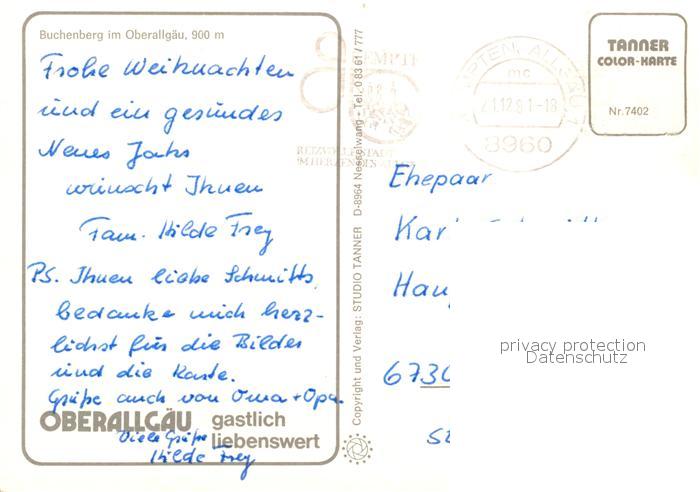 Buchenberg im Oberallgäu, 900 m
Frohe Weihnachten
und ein gesundes
Neues Jahr
wünscht Ihnen
Fam. Hilde Frey
PS. Ihnen liebe Schmitts,
bedanke mich herz-
lichst für die Bilder
und die Karte.
Grüße auch von Oma + Opa.
OBERALLGÄU gastlich
liebenswert
Viele Grüße
Hilde Frey
Copyright und Verlag: STUDIO TANNER D-8964 Nesselwang - Tel. 0 83 61 / 777
KEMPTEN, ALLGÄU 1
mc
21.12.81-18
8960
TANNER
COLOR-KARTE
Nr. 7402
Ehepaar
Kar
Hau
6730
privacy protection
Datenschutz